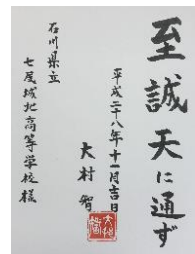 至誠天に通ず
平成二十八年十一月吉日
大村智
石川県立
七尾城北高等学校様